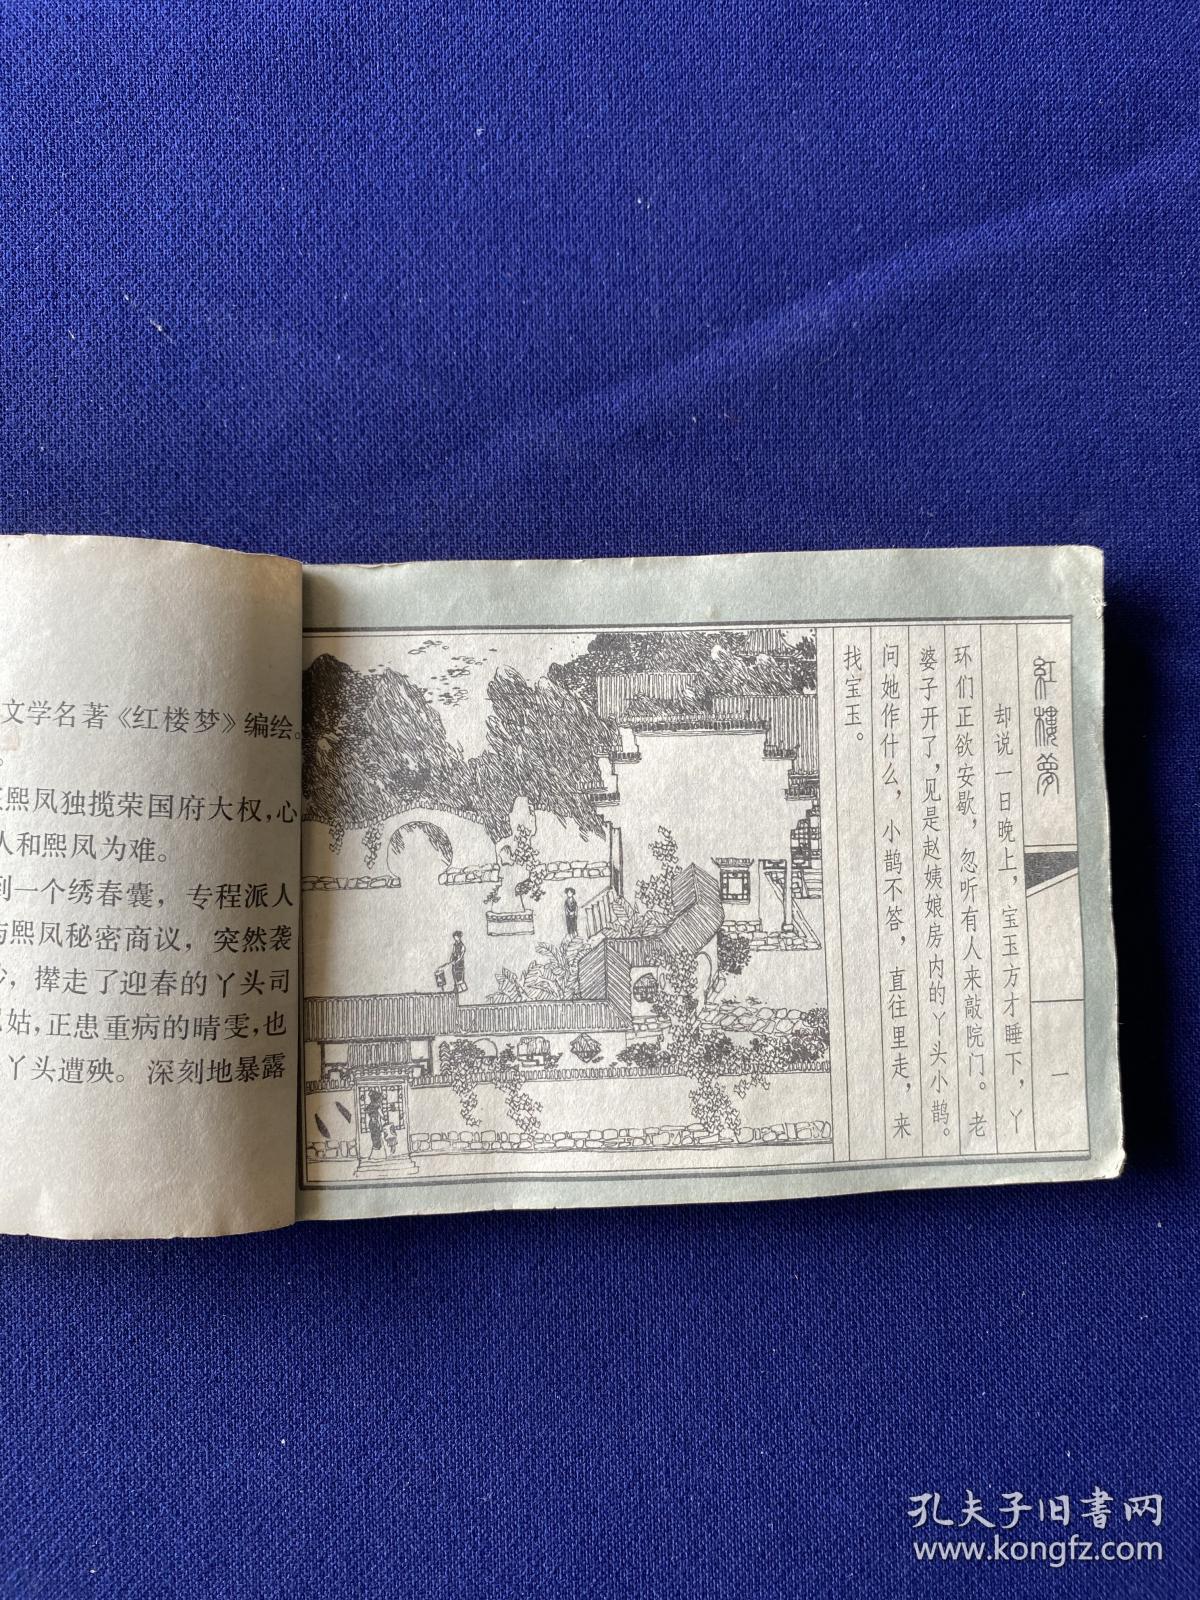 文学名著《红楼梦》编绘。
熙凤独揽荣国府大权,心
人和熙凤为难。
到一个绣春囊，专程派人
与熙凤秘密商议，突然袭
，撵走了迎春的丫头司
姑,正患重病的晴雯,也
丫头遭殃。深刻地暴露
红楼梦
一
却说一日晚上，宝玉方才睡下，丫
环们正欲安歇，忽听有人来敲院门。老
婆子开了，见是赵姨娘房内的丫头小鹊。
问她作什么，小鹊不答，直往里走，来
找宝玉。
孔夫子旧书网
www.kongfz.com